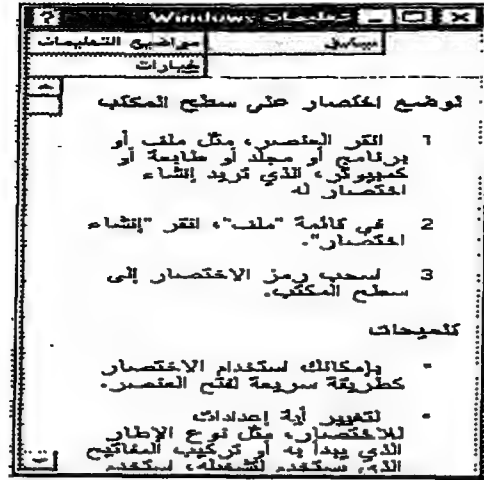 تعليمات Windows
مواضيع التعليمات
خيارات
لوضع اختصار على سطح المكتب
1 انقر العنصر، مثل ملف أو
برنامج أو مجلد أو طابعة أو
كمبيوتر، الذي تريد إنشاء
اختصار له
2 في قائمة "ملف"، انقر "إنشاء
اختصار".
3 لسحب رمز الاختصار إلى
سطح المكتب.
تلميحات
بإمكانك استخدام الاختصار
كطريقة سريعة لفتح العنصر.
لتغيير أية إعدادات
للاختصار، مثل نوع الإطار
الذي يبدأ به أو تركيب المفاتيح